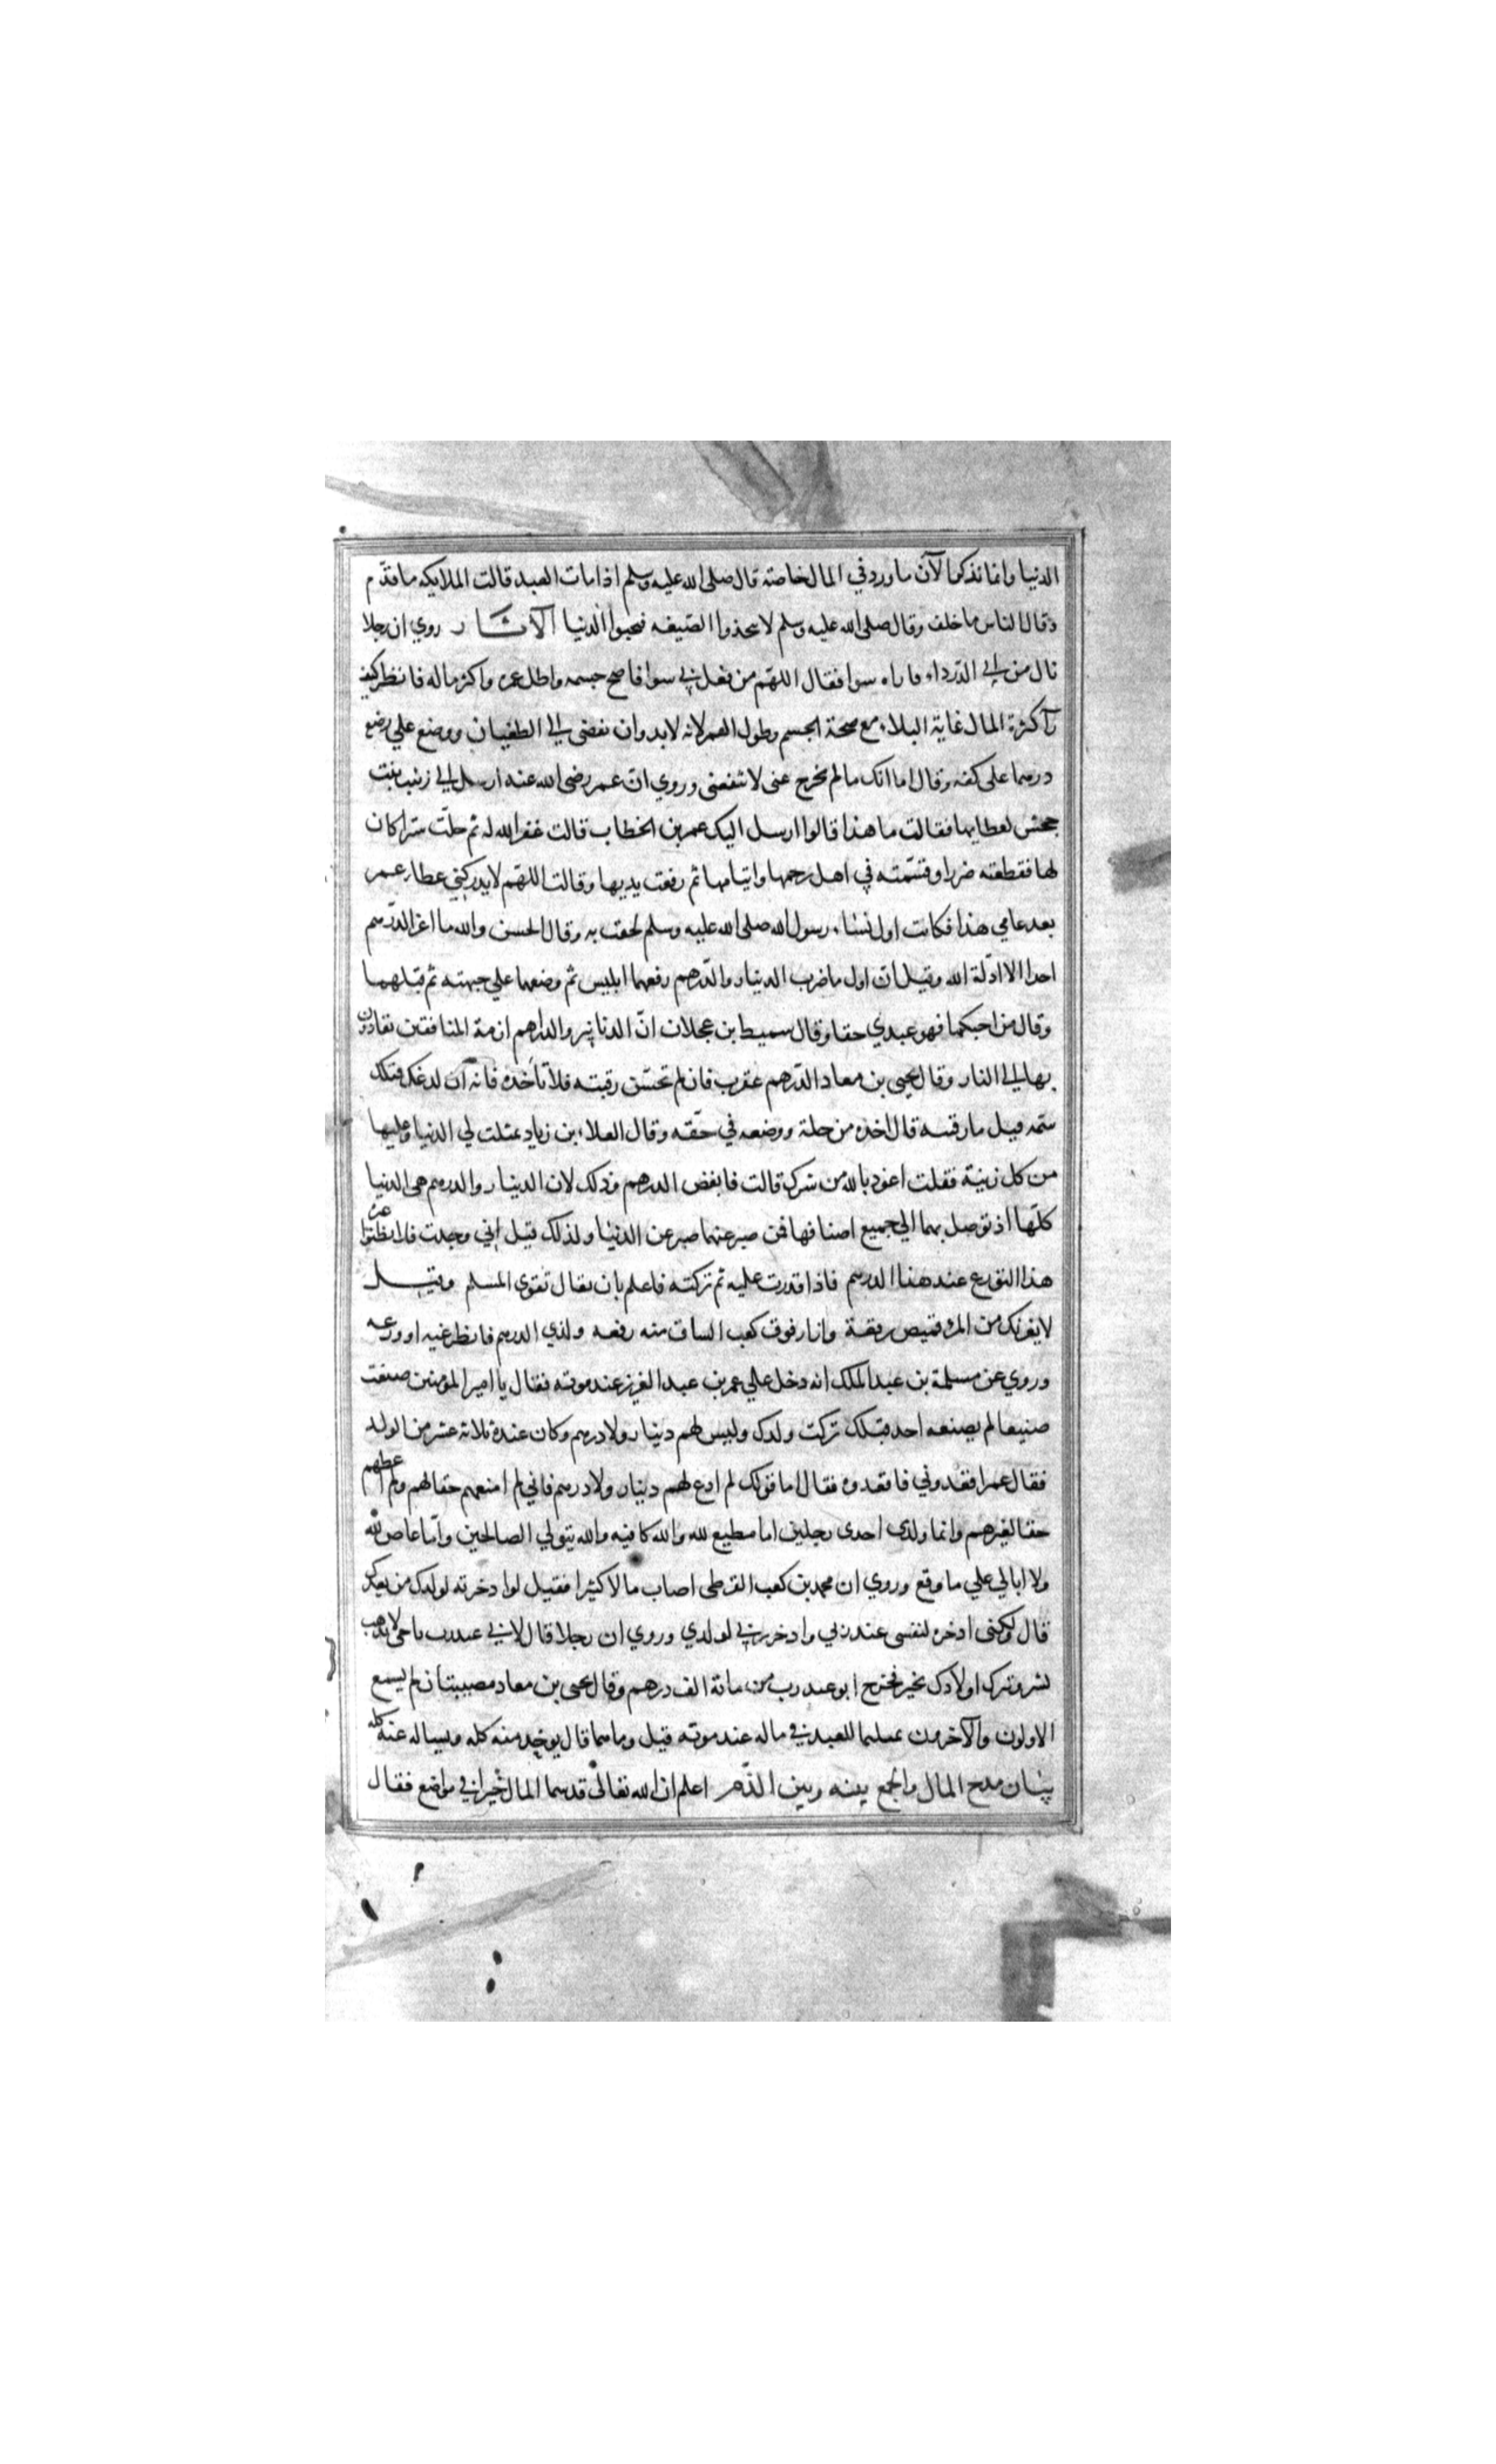 الدنيا وانما نذكر الآن ما ورد في المال خاصته قال صلى الله عليه وسلم اذا مات العبد قالت الملايكه ما قدّم
وقال الناس ما خلف وقال صلى الله عليه وسلم لا تتخذوا الضيغه فتحبوا الدنيا الآثار روي ان رجلا
نال من ابي الدرداء واراه سوا فقال اللهّم من فعل بي سوا فاصح جسمه واطل عمره واكثر ماله فانظر كيف
رآ كثرة المال غاية البلاء مع صحة الجسم وطول العمر لانه لابد وان نفضى الي الطغيان ووضع علي رضع
درهما على كفه وقال اما انك ما لم تخرج عنى لا تنفعنى وروي ان عمر رضى الله عنه ارسل الي زينب بنت
جحش لعطايها فقالت ما هذا قالوا ارسل اليك عمر بن الخطاب قالت غفر الله له ثم حلّت سترا كان
لها فقطعته ضررا وقسّمته في اهل رحمها وايتامها ثم رفعت يديها وقالت اللهّم لا يدركني عطاء عمر
بعد عامي هذا فكانت اول نساء رسول الله صلى الله عليه وسلم لحقت به وقال الحسن والله ما اعز الدّرهم
احدا الا اذّلة الله وقيل انّ اول ما ضرب الدينار والدّرهم رفعهما ابليس ثم وضعهما علي جبهته ثم قبّلهما
وقال من احبكما فهو عبدي حقا وقال سميط بن عجلان انّ الدنانير والدراهم ازمة المنافقين نقادون
بها الي النار وقال يحيى بن معاد الدّرهم عقرب فان لم تحسّن رقيته فلا تأخذه فانه ان لدغك قتلك
سّمه قيل ما رقيته قال اخذه من حلة ووضعه في حقّه وقال العلاء بن زياد تمثلت لي الدنيا وعليها
من كل زينة فقلت اعوذ بالله من شرك قالت فابغض الدرهم وذلك لان الدينار والدرهم هى الدنيا
كلّها اذ توصل بهما الي جميع اصنافها فمن صبر عنهما صبر عن الدنيا ولذلك قيل اني وجدت فلا تظنوا غيره
هذا التورع عند هذا الدرهم فاذا قدرت عليه ثم تركته فاعلم بان تقال تقوى المسلم وقيل
لا يغرنك من المرء قميص رقعة وازار فوق كعب الساق منه رفعه ولذي الدرهم فانظر غيه او ورعه
وروي عن مسلمة بن عبد الملك انه دخل علي عمر بن عبد العزيز عند موته فقال يا امير المومنين صنعت
صنيعا لم يصنعه احد قبلك تركت ولدك وليس لهم دينار ولا درهم وكان عنده ثلاثة عشر من الولد
فقال عمر اقعدوني فاقعدوه فقال اما قولك لم ادع لهم دينار ولا درهم فاني لم امنعهم حقا لهم ولم اعطهم
حقا لغيرهم وانما ولدى احدى رجلين اما مطيع لله والله كافيه والله يتولي الصالحين واما عاص لله
ولا ابالي علي ما وقع وروي ان محمد بن كعب القرظى اصاب مالا كثيرا فقيل لو ادخرته لولدك من بعدك
قال لا ولكنى ادخره لنفسى عند ربي وادخر ربي لولدي وروي ان رجلا قال لابي عبد رب يا اخى لا تذهب
بشر وتترك اولادك بخير فخرج ابو عبد رب من مائة الف درهم وقال يحيى بن معاد مصيبتان لم يسمع
الاولون والآخرون بمثلهما للعبد في ماله عند موته قيل وما هما قال يوخذ منه كله ويساله عنه كله
بيان مدح المال والجمع بينه وبين الذّم اعلم ان الله تعالى قد سما المال خيرا في مواضع فقال